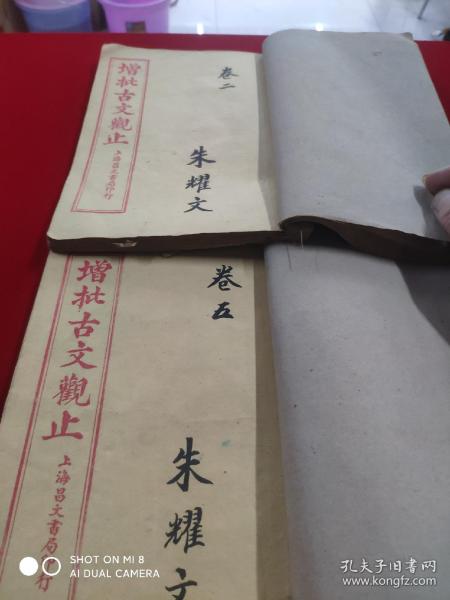 增批古文觀止
上海昌文書局印行
卷二
朱耀文
增批古文觀止
上海昌文書局印行
卷五
朱耀文
SHOT ON MI 8
AI DUAL CAMERA
孔夫子旧书网
www.kongfz.com